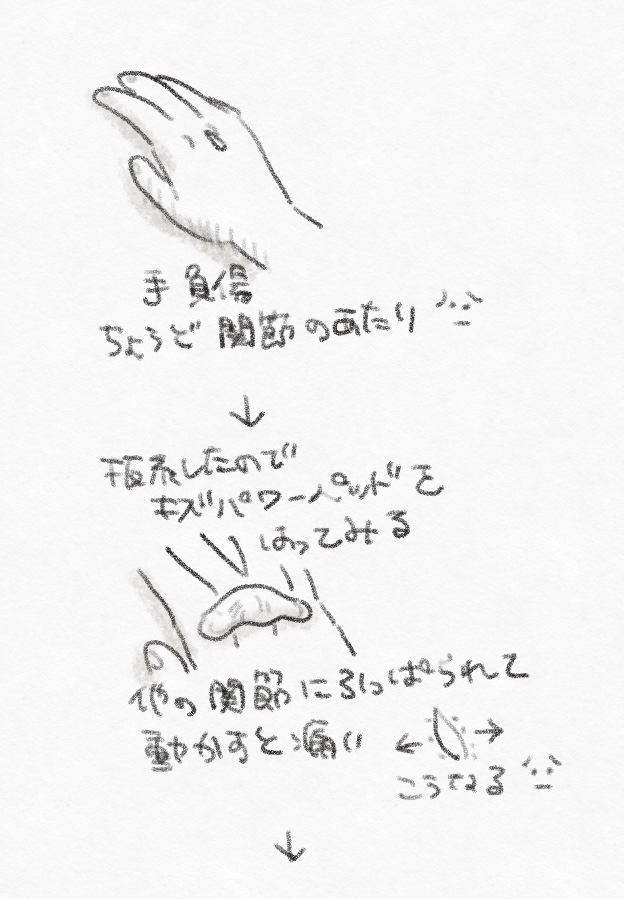 手負傷
ちょうど関節のあたり
↓
板流したので
キズパワーパッドを
はってみる
他の関節にひっぱられて
動かすと痛い
← →
こうなる
↓